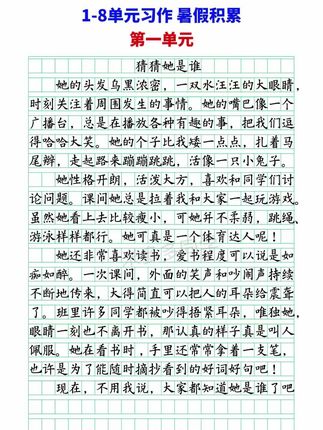 1-8单元习作 暑假积累
第一单元
猜猜她是谁
她的头发乌黑浓密，一双水汪汪的大眼睛，
时刻关注着周围发生的事情。她的嘴巴像一个
广播台，总是在播放各种有趣的事，把我们逗
得哈哈大笑。她的个子比我矮一点点，扎着马
尾辫，走起路来蹦蹦跳跳，活像一只小兔子。
她性格开朗，活泼大方，喜欢和同学们讨
论问题。课间她总是拉着我和大家一起玩游戏。
虽然她看上去比较瘦小，可她并不柔弱，跳绳、
游泳样样都行。她可真是一个体育达人呢！
她还非常喜欢读书，爱书程度可以说是如
痴如醉。一次课间，外面的笑声和吵闹声持续
不断地传来，大得简直可以把人的耳朵给震聋
了。班里许多同学都被吵得捂紧耳朵，唯独她，
眼睛一刻也不离开书，那认真的样子真是叫人
佩服。她在看书时，手里还常常拿着一支笔，
也许是为了能随时摘抄看到的好词好句吧！
现在，不用我说，大家都知道她是谁了吧